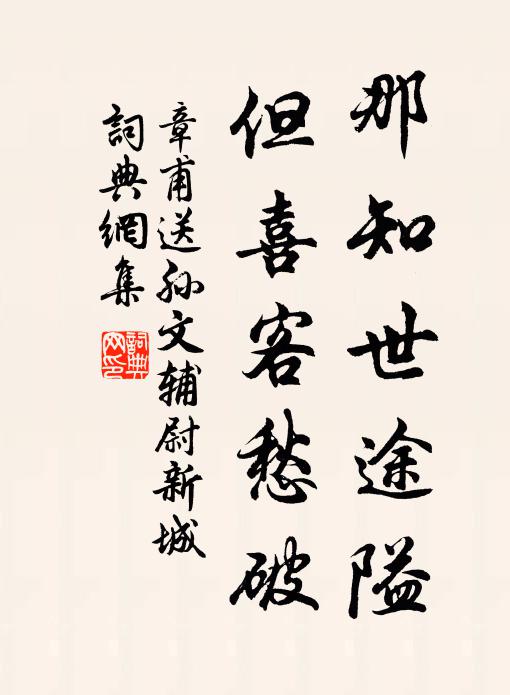 那知世途隘
但喜客愁破
章甫送孙文辅尉新城
詞典網集
詞典网印